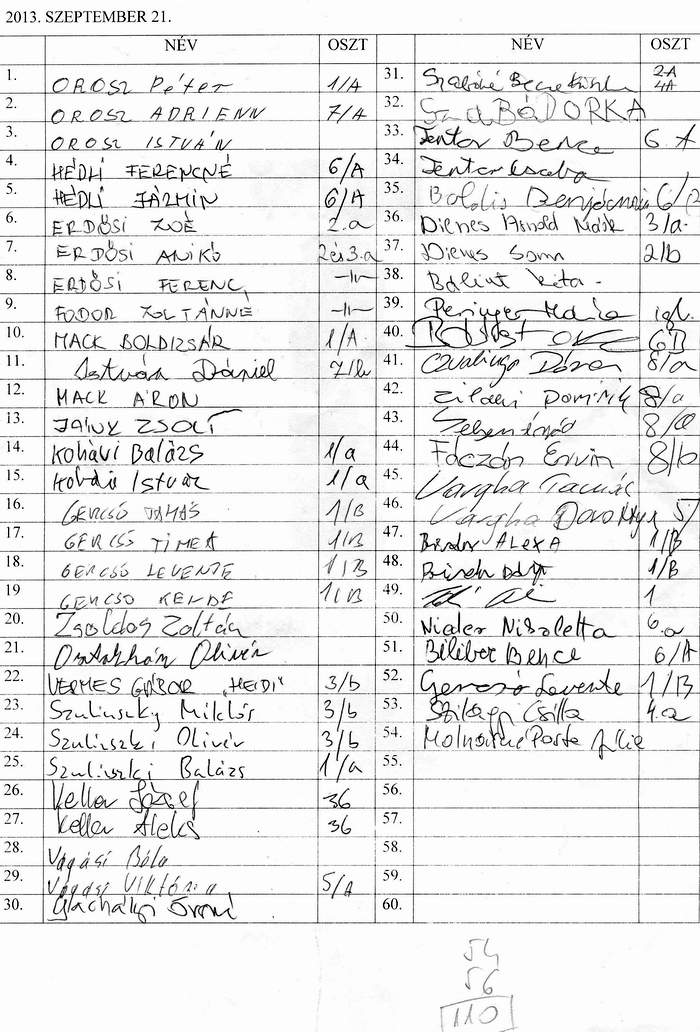 2013. SZEPTEMBER 21.
NÉV OSZT
1. OROSZ Péter 1/A
2. OROSZ ADRIENN 7/A
3. OROSZ ISTVÁN
4. HÉDLI FERENCNÉ 6/A
5. HÉDLI JÁZMIN 6/A
6. ERDŐSI ZOÉ 2.a
7. ERDŐSI ANIKÓ 2és3.a
8. ERDŐSI FERENC -||-
9. FODOR ZOLTÁNNÉ -||-
10. MACK BOLDIZSÁR 1/A
11. István Dániel 7/b
12. MACK ÁRON
13. ZSOLT
14. Balázs 1/a
15. István 1/a
16. GERCSÓ TAMÁS 1/B
17. GERCSÓ TÍMEA 1/B
18. GERCSÓ LEVENTE 1/B
19 GERCSÓ KENDE 1/B
20. Zsoldos Zoltán
21. Olivér
22. VERMES GÁBOR „HEIDI" 3/b
23. Szulinszky Miklós 3/b
24. Szulinszki Olivér 3/b
25. Szulinszki Balázs 1/a
26. Keller József 36
27. Keller Aleks 36
28. Vágási Béla
29. Vágási Viktória 5/A
30.
NÉV OSZT
31. Szabóné 2A 4A
32. SzaBÓ DORKA
33. Jentor Bence 6.A
34. Jentor Csaba
35. Boldis Benjámin 6/
36. Dienes Arnold Márk 3/a.
37. Dienes Soma 2/b
38. Bálint Kata
39. Peringer Mária igl.
40. 6B
41. Dóra 8/a
42. Zilahi Dominik 8/a
43. 8/a
44. Faczán Ervin 8/b
45. Vargha Tamás
46. Vargha Dorottya 5/
47. ALEXA 1/B
48. 1/B
49. 1
50. Nikoletta 6.a
51. Biliboc Bence 6/A
52. Gercsó Levente 1/B
53. Szilágyi Csilla 4.a
54. Molnárné Júlia
55.
56.
57.
58.
59.
60.
54
56
110